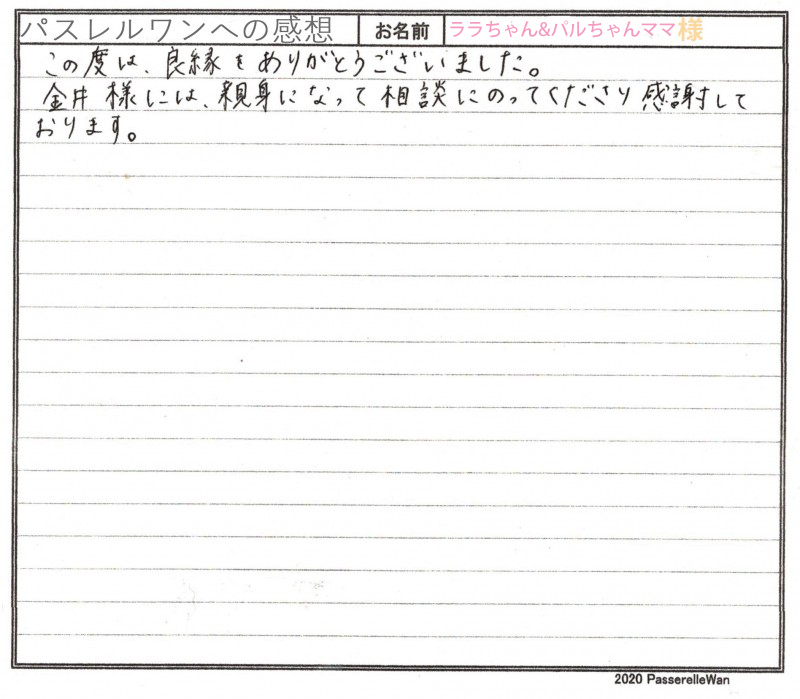 パスレルワンへの感想 お名前 ララちゃん&パルちゃんママ様
この度は、良縁をありがとうございました。
金井様には、親身になって相談にのってくださり感謝して
おります。
2020 PasserelleWan